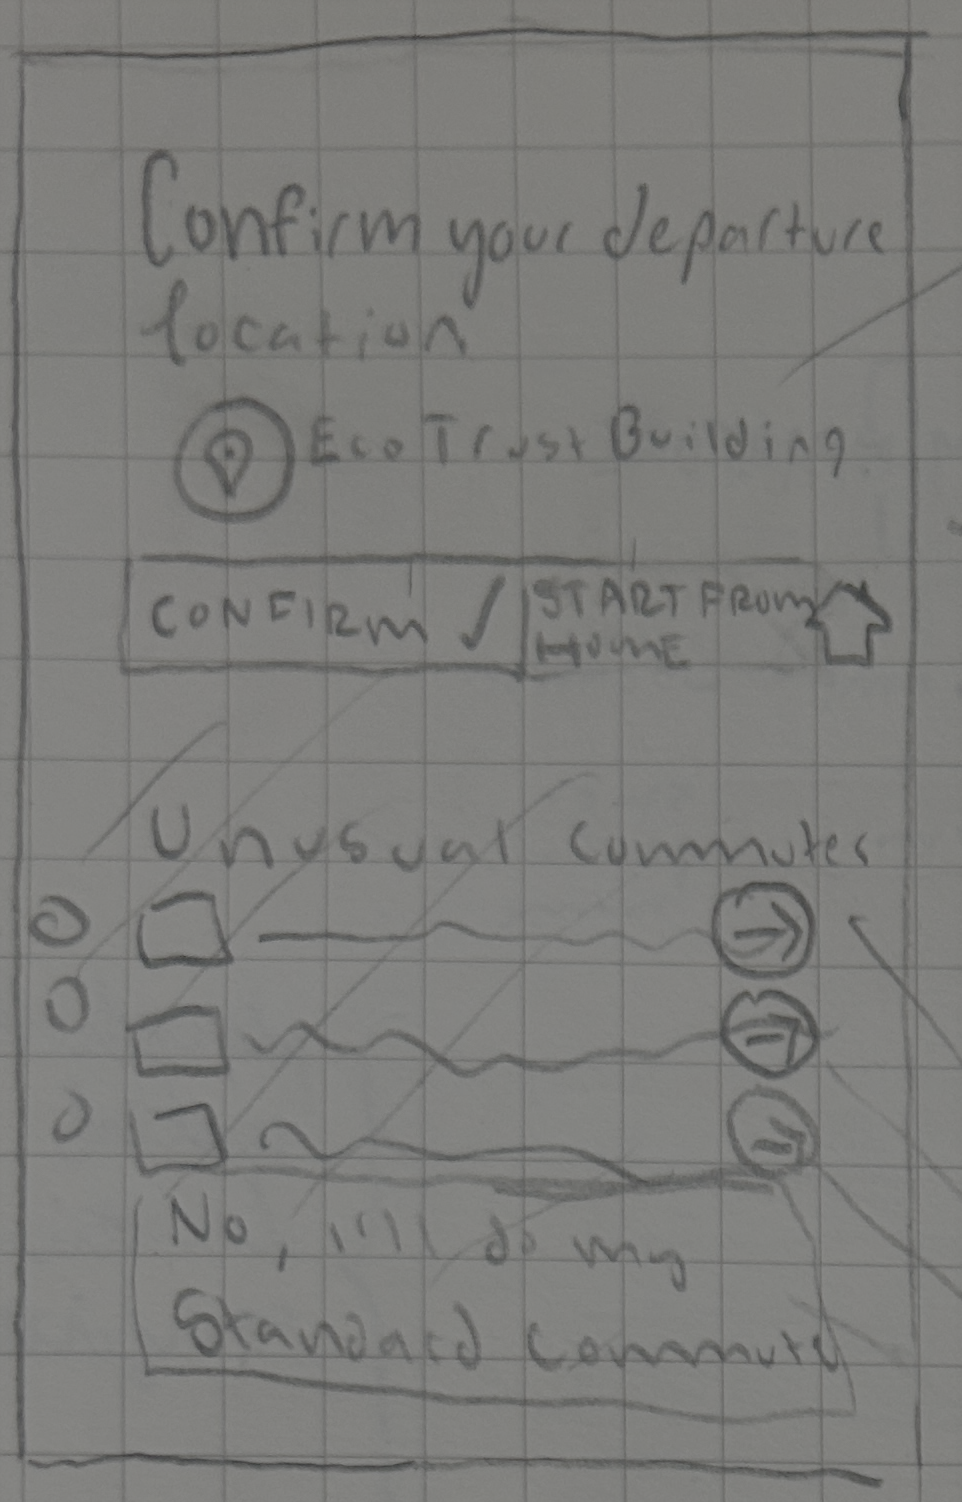 Confirm your departure
location
EcoTrust Building
CONFIRM
START FROM
HOME
Unusual Commutes
No, I'll do my
Standard Commute